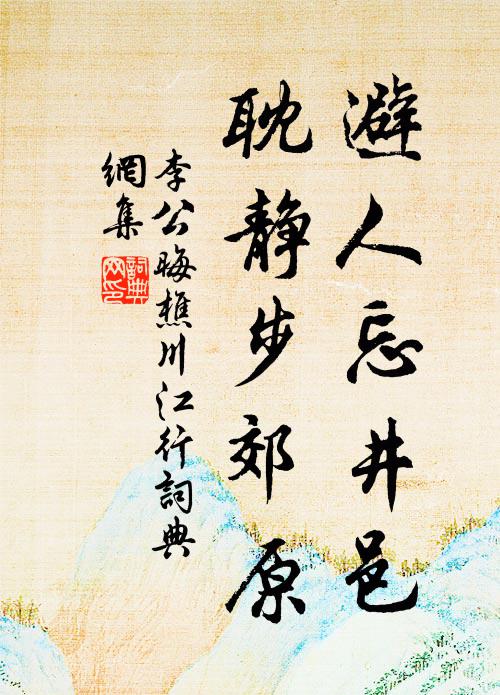 避人忘井邑
耽静步郊原
李公晦樵川江行詞典
網集
詞典網印